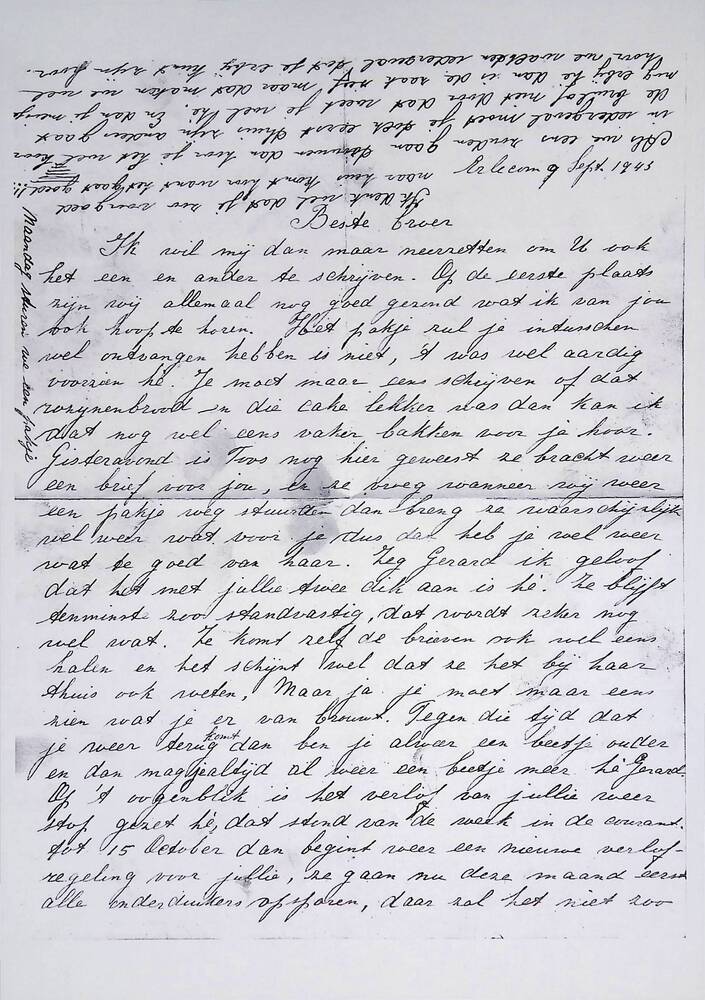 Erlecom 9 Sept. 1943
Beste broer
Ik wil mij dan maar neerzetten om U ook
het een en ander te schrijven. Op de eerste plaats
zijn wij allemaal nog goed gezond wat ik van jou
ook hoop te horen. Het pakje zul je intusschen
wel ontvangen hebben is niet, 't was wel aardig
voorzien hè. Je moet maar eens schrijven of dat
rozynenbrood en die cake lekker was dan kan ik
dat nog wel eens vaker bakken voor je hoor.
Gisteravond is Toos nog hier geweest ze bracht weer
een brief voor jou, en ze vroeg wanneer wij weer
een pakje weg stuurden dan breng ze waarschijnlijk
wel weer wat voor je dus dan heb je wel weer
wat te goed van haar. Zeg Gerard ik geloof
dat het met jullie twee dik aan is hè. Ze blijft
tenminste zoo standvastig, dat wordt zeker nog
wel wat. Ze komt zelf de brieven ook wel eens
halen en het schijnt wel dat ze het bij haar
thuis ook weten, Maar ja je moet maar eens
zien wat je er van brouwt. Tegen die tijd dat
je weer terug komt dan ben je alweer een beetje ouder
en dan mag je altijd al weer een beetje meer hè Gerard.
Op 't oogenblik is het verlof van jullie weer
stop gezet hè, dat stond van de week in de courant.
tot 15 October dan begint weer een nieuwe verlof-
regeling voor jullie, ze gaan nu deze maand eerst
alle onderduikers opsporen, daar zal het niet zoo
Maandag sturen we een pakje
Ik denk wel dat je zoo voorgoed
naar huis komt hoor want het gaat goed!!!
Als we eens zouden gaan trouwen dan hoor je het wel hoor
in iedergeval moet je toch eerst thuis zijn anders gaat
de bruiloft niet door dat weet je wel hè. En dan je meisje
nog erbij hè dan is de zaak zeg maar dat maken we wel
hoor we wachten iedergeval dat je erbij kunt zijn hoor.